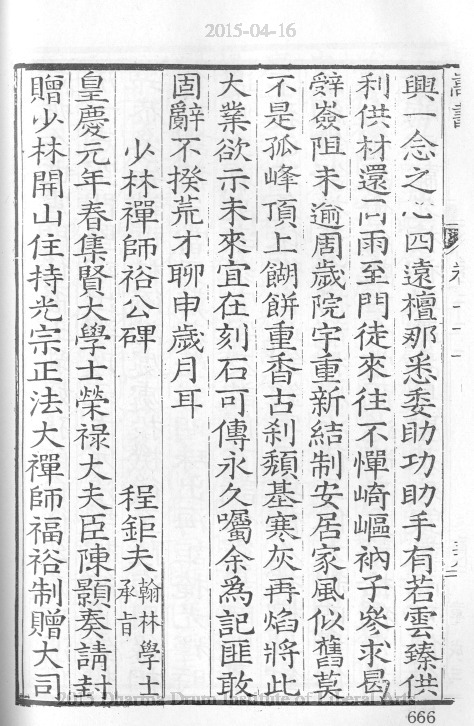 2015-04-16
興一念之心四遠檀那悉委助功助手有若雲臻供
利供材還同雨至門徒來往不憚崎嶇衲子參求曷
辤嶮阻未逾周歲院宇重新結制安居家風似舊莫
不是孤峰頂上餬餅重香古剎頹基寒灰再焰將此
大業欲示未來宜在刻石可傳永久囑余為記匪敢
固辭不揆荒才聊申歲月耳
少林禪師裕公碑 程鉅夫 翰林學士承旨
皇慶元年春集賢大學士榮祿大夫臣陳顥奏請封
贈少林開山住持光宗正法大禪師福裕制贈大司
2015 Dharma Drum Institute of Liberal Arts
666